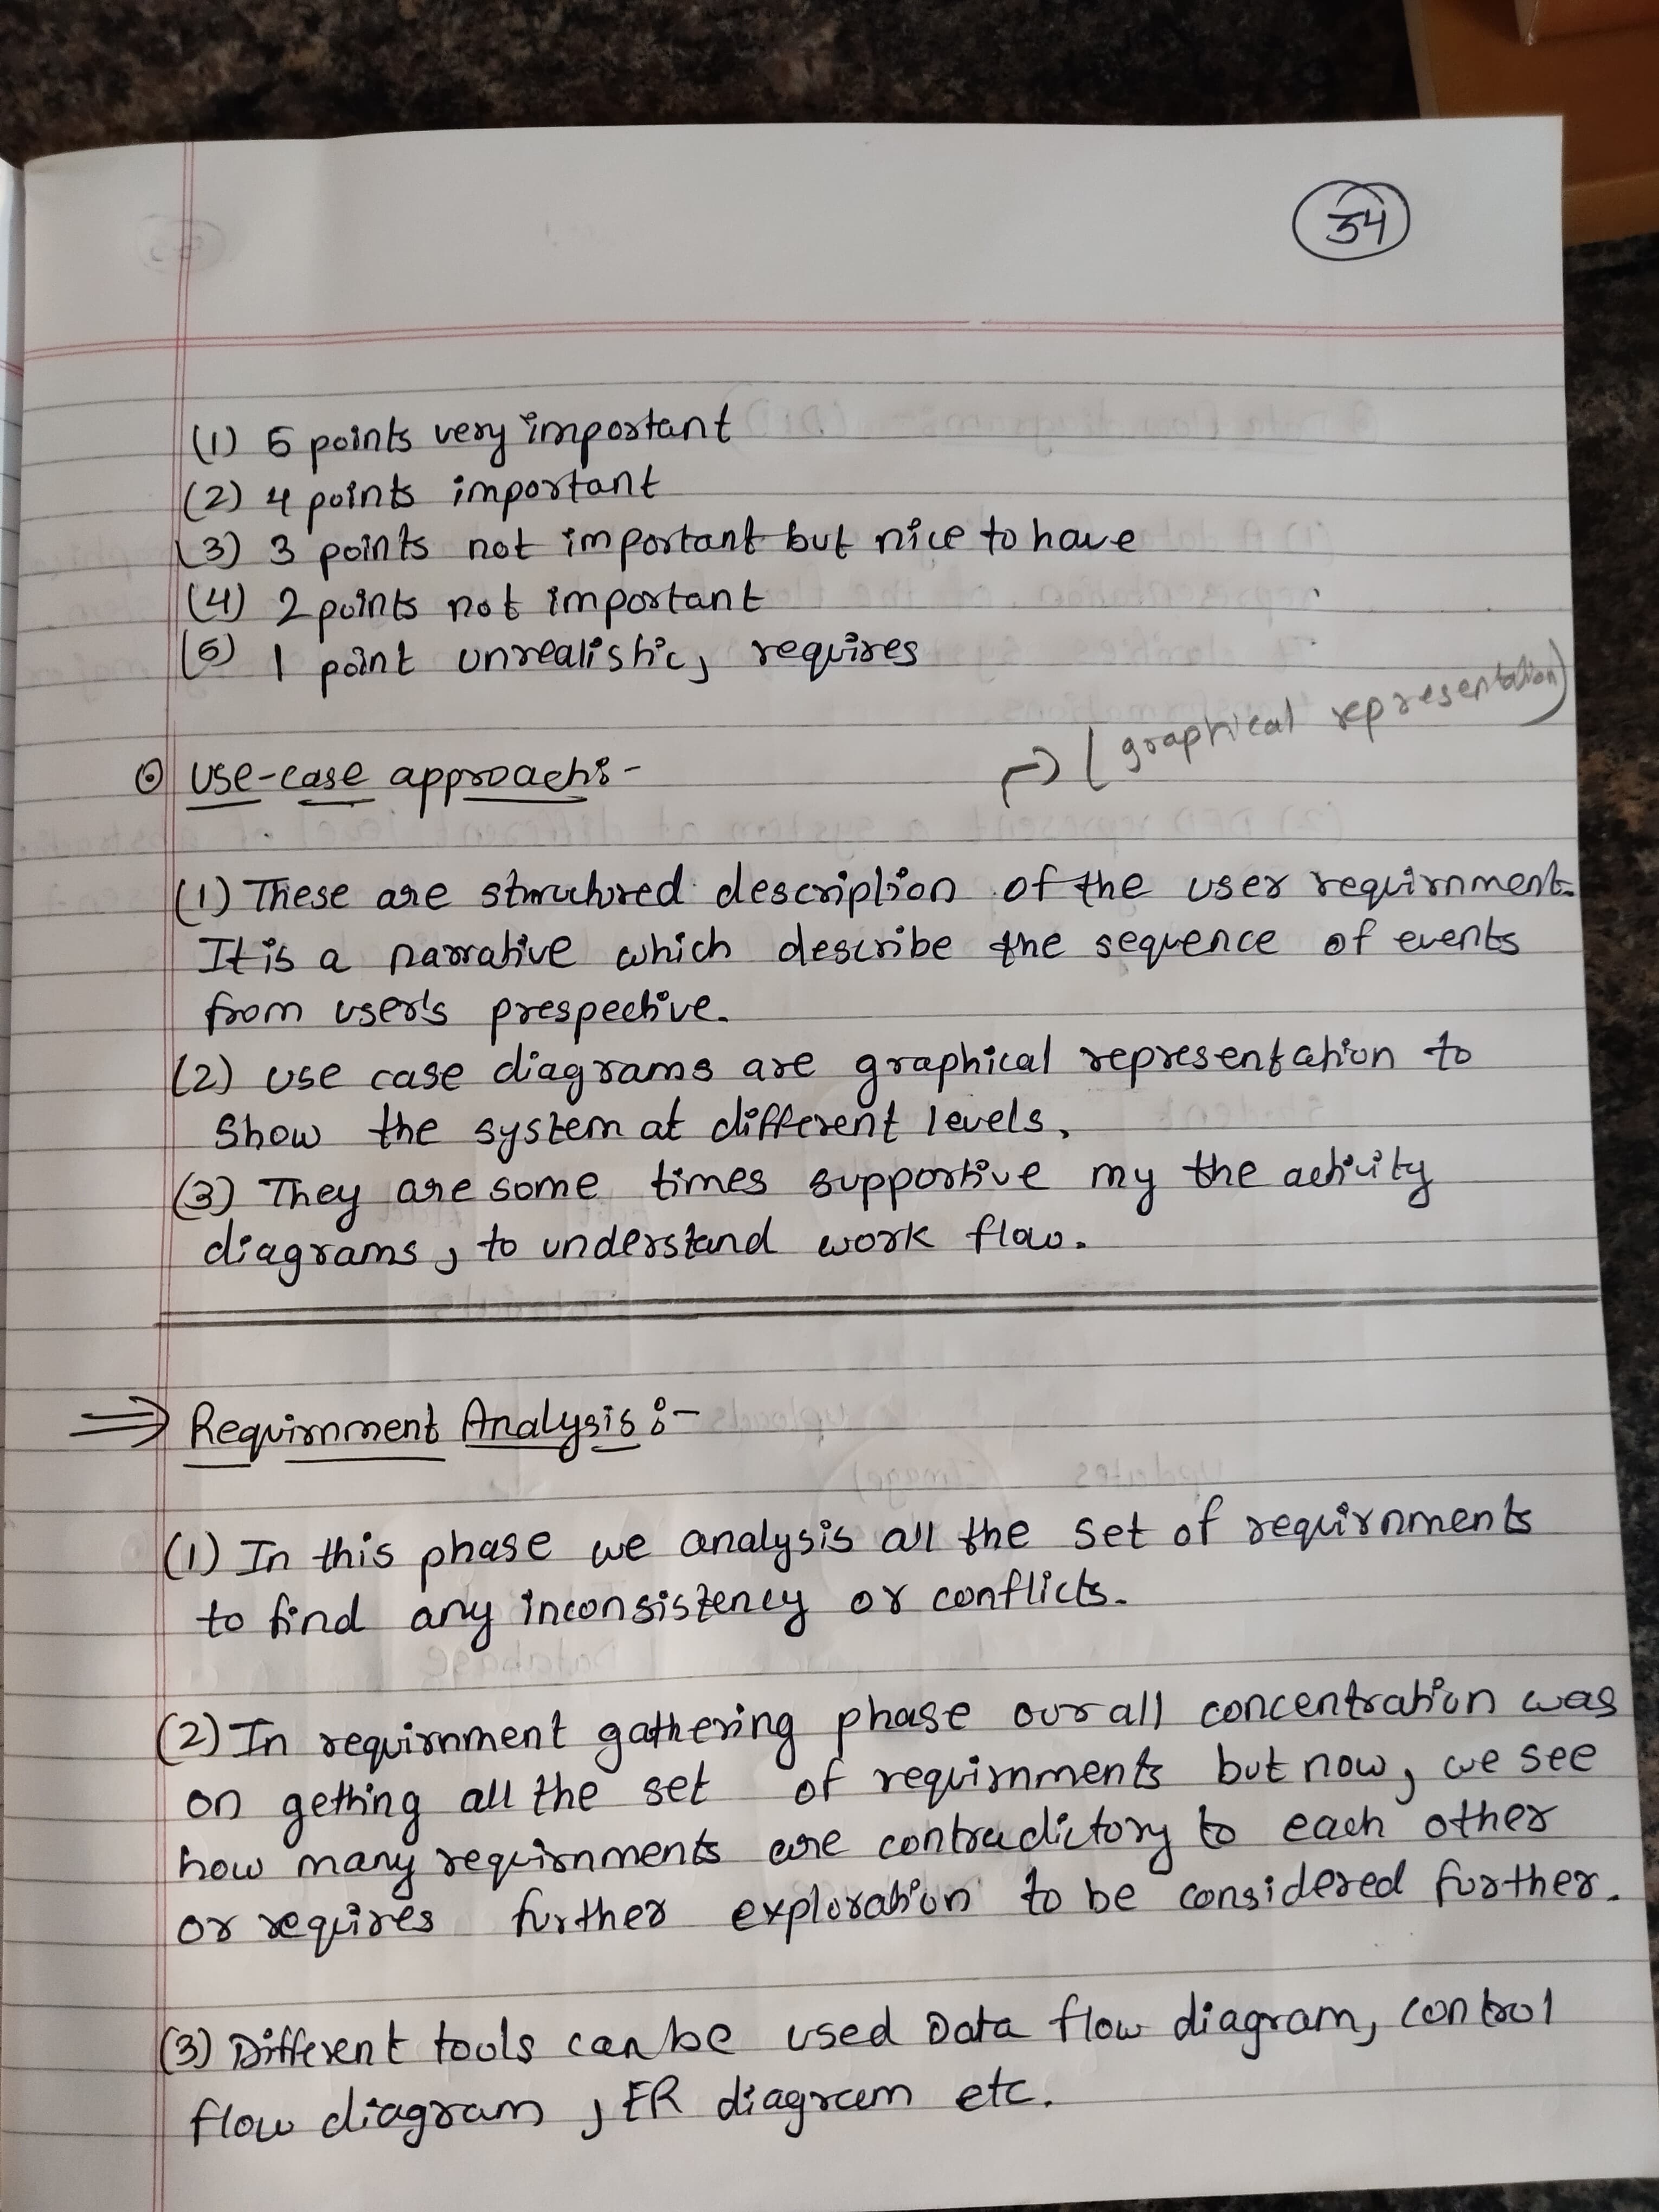 34
(1) 5 points very important
(2) 4 points important
(3) 3 points not important but nice to have
(4) 2 points not important
(5) 1 point unrealistic, requires
→ (graphical representation)
⊙ Use-case approach:-
(1) These are structured description of the user requirnment.
It is a narrative which describe the sequence of events
from user's prespective.
(2) Use case diagrams are graphical representation to
Show the system at different levels.
(3) They are some times supportive my the activity
diagrams, to understand work flow.
⇒ Requirnment Analysis :-
(1) In this phase we analysis all the set of requirnments
to find any inconsistency or conflicts.
(2) In requirnment gathering phase our all concentration was
on getting all the set of requirnments but now, we see
how many requirnments are contradictory to each other
or requires further exploration to be considered further.
(3) Different tools can be used Data flow diagram, control
flow diagram, ER diagram etc.